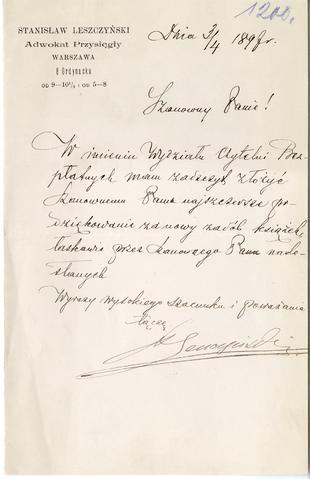 1200.
STANISŁAW LESZCZYŃSKI
Adwokat Przysięgły
WARSZAWA
8 Ordynacka
OD 9—10½ i OD 5—8
Dnia 3/4 1897 r.
Szanowny Panie!
W imieniu Wydziału Czytelni Bez-
płatnych mam zaszczyt złożyć
Szanownemu Panu najszczersze po-
dziękowanie za nowy zasób książek,
łaskawie przez Szanownego Pana nade-
słanych
Wyrazy wysokiego szacunku i poważania
łączę